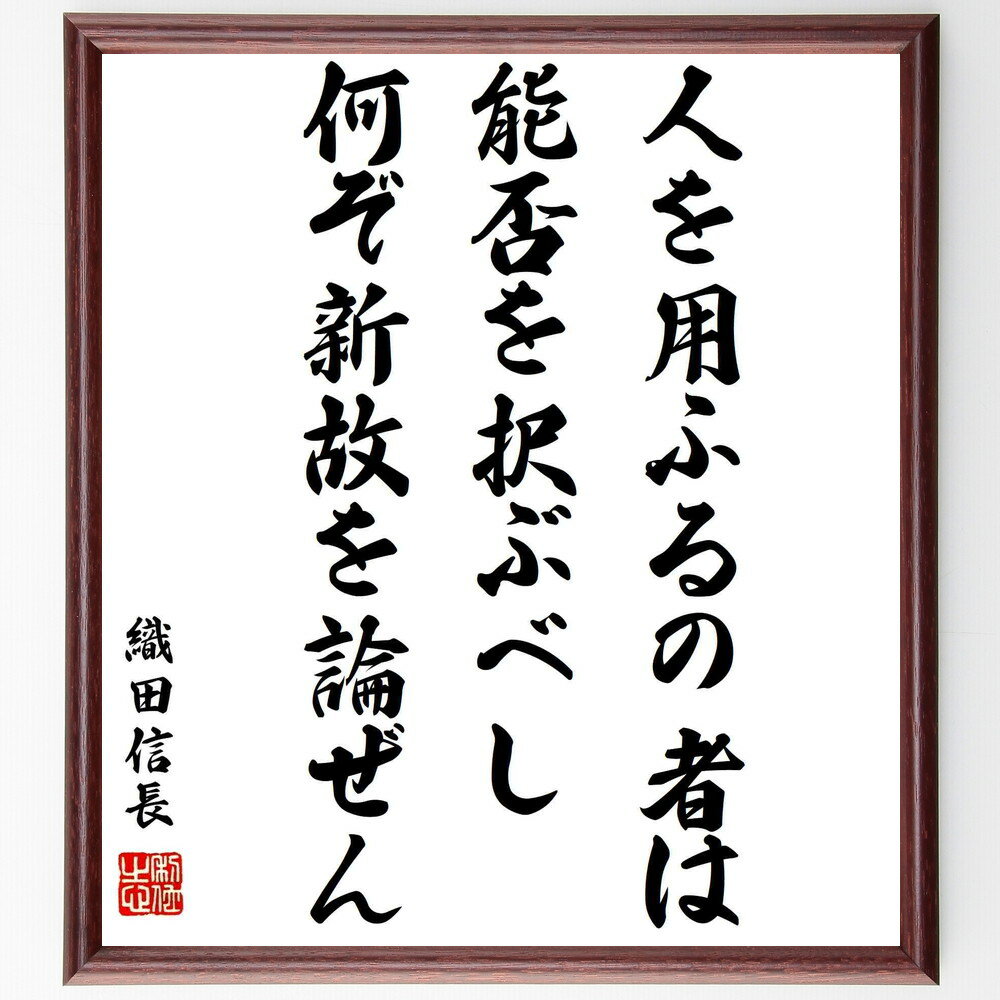 人を用ふるの者は
能否を択ぶべし
何ぞ新故を論ぜん
織田信長